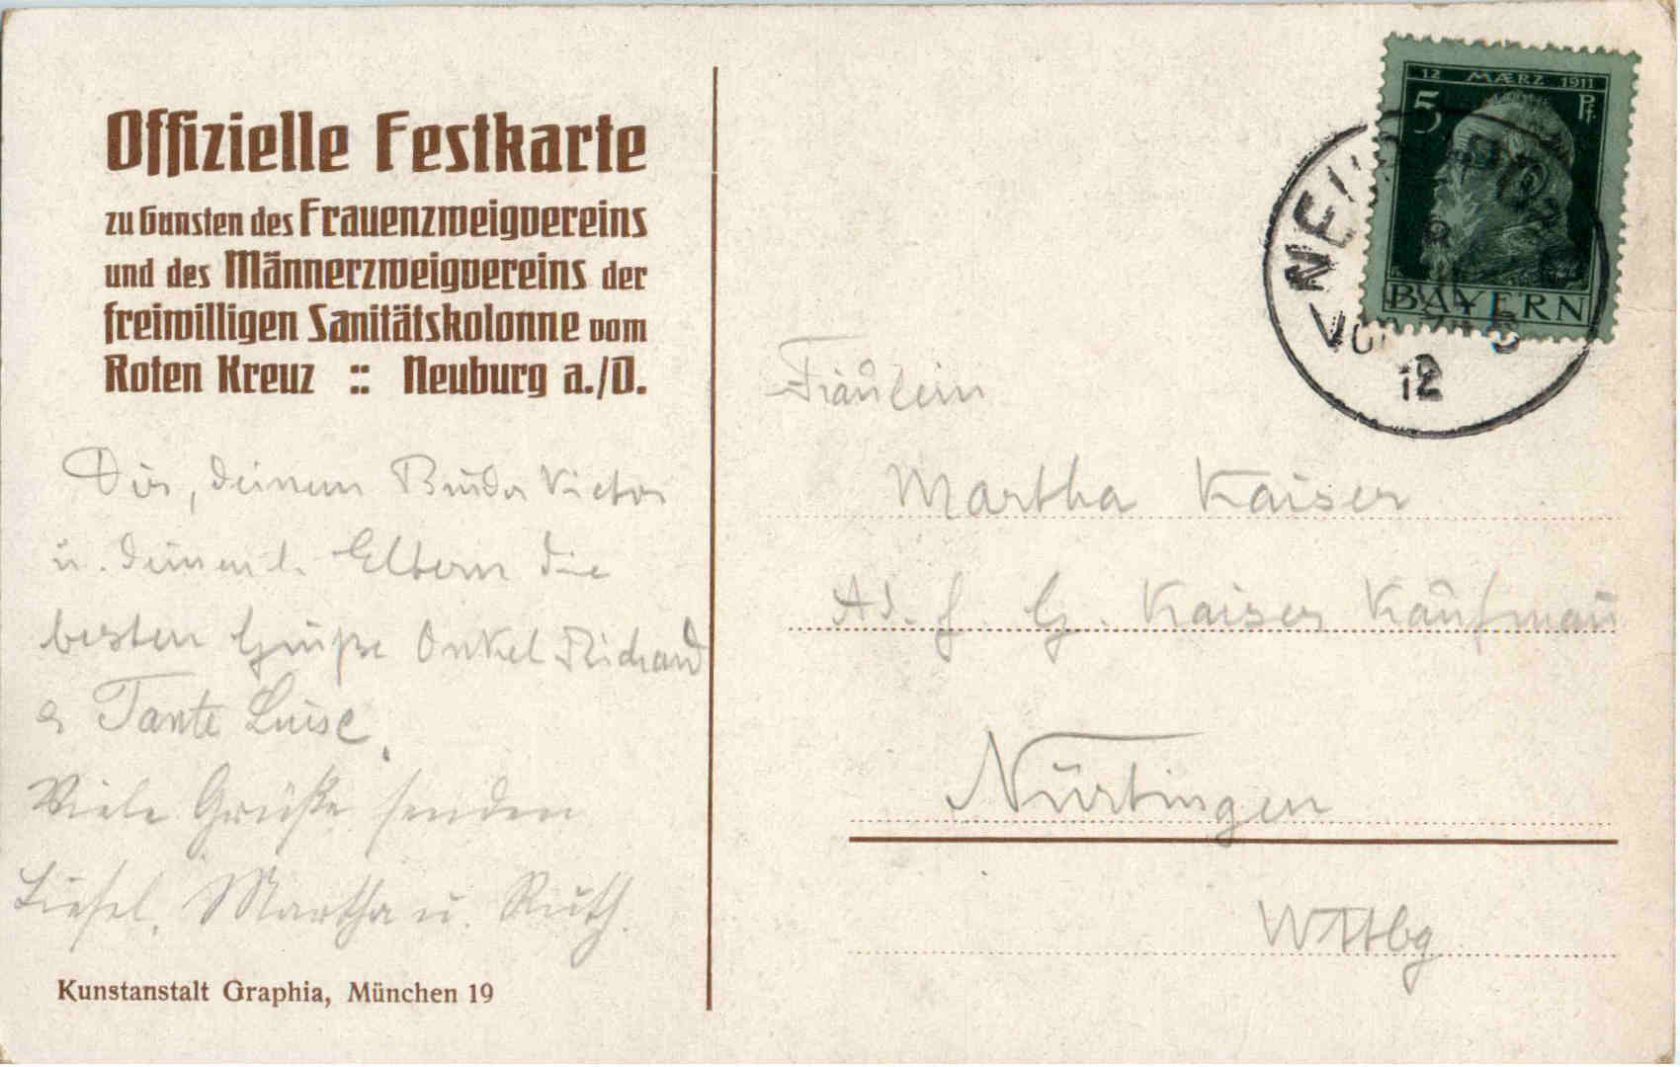 Offizielle Festkarte
zu Gunsten des Frauenzweigvereins
und des Männerzweigvereins der
freiwilligen Sanitätskolonne vom
Roten Kreuz :: Neuburg a./D.
Dir, deinem Bruder Victor
u. deinen l. Eltern die
besten Grüße Onkel Richard
& Tante Luise.
Viele Grüße senden
Liesel, Martha u. Ruth.
Kunstanstalt Graphia, München 19
12 MÆRZ 1911
5 Pf
BAYERN
NEU
VOR
12
Fräulein
Martha Kaiser
Ad. f. G. Kaiser Kaufmañ
Nürtingen
Wttbg